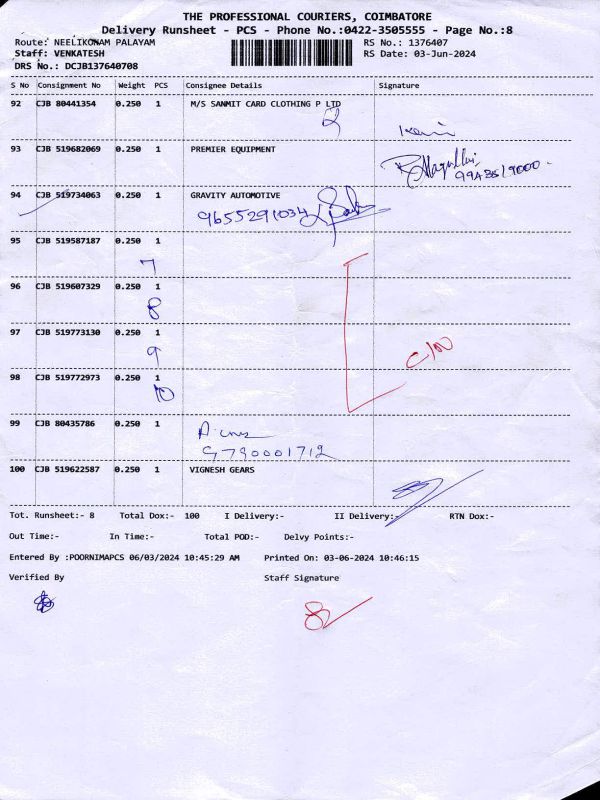 THE PROFESSIONAL COURIERS, COIMBATORE
Delivery Runsheet - PCS - Phone No.:0422-3505555 - Page No.:8
Route: NEELIKONAM PALAYAM RS No.: 1376407
Staff: VENKATESH RS Date: 03-Jun-2024
DRS No.: DCJB137640708
S No Consignment No Weight PCS Consignee Details Signature
92 CJB 80441354 0.250 1 M/S SANMIT CARD CLOTHING P LTD
93 CJB 519682069 0.250 1 PREMIER EQUIPMENT
94 CJB 519734063 0.250 1 GRAVITY AUTOMOTIVE
9655291034
95 CJB 519587187 0.250 1
7
96 CJB 519607329 0.250 1
8
97 CJB 519773130 0.250 1
9
98 CJB 519772973 0.250 1
10
99 CJB 80435786 0.250 1
9790001712
100 CJB 519622587 0.250 1 VIGNESH GEARS
Tot. Runsheet:- 8 Total Dox:- 100 I Delivery:- II Delivery:- RTN Dox:-
Out Time:- In Time:- Total POD:- Delvy Points:-
Entered By :POORNIMAPCS 06/03/2024 10:45:29 AM Printed On: 03-06-2024 10:46:15
Verified By Staff Signature